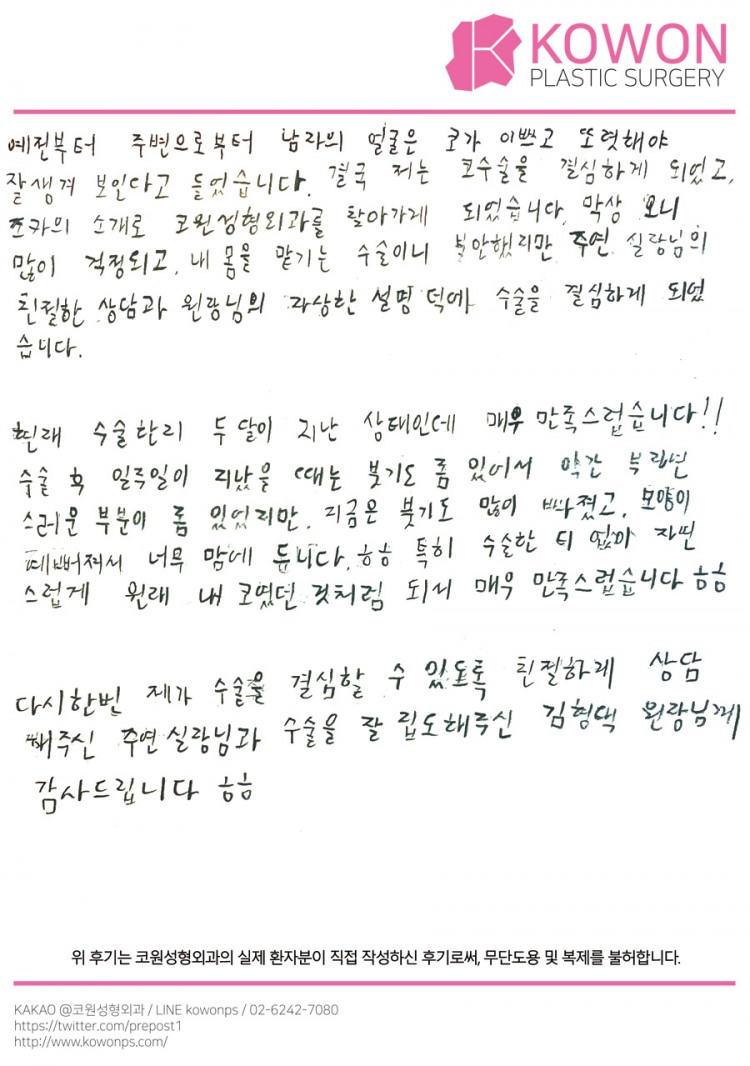 KOWON
PLASTIC SURGERY
예전부터 주변으로부터 남자의 얼굴은 코가 이쁘고 또렷해야
잘생겨 보인다고 들었습니다. 결국 저는 코수술을 결심하게 되었고,
조카의 소개로 코원성형외과를 찾아가게 되었습니다. 막상 오니
많이 걱정되고, 내 몸을 맡기는 수술이니 불안했지만 주연 실장님의
친절한 상담과 원장님의 자상한 설명 덕에 수술을 결심하게 되었
습니다.
현재 수술한지 두 달이 지난 상태인데 매우 만족스럽습니다!!
수술 후 일주일이 지났을 때는 붓기도 좀 있어서 약간 부
스러운 부분이 좀 있었지만, 지금은 붓기도 많이 빠졌고, 모양이
예뻐져서 너무 맘에 듭니다. ㅎㅎ 특히 수술한 티 없이 자연
스럽게 원래 내 코였던 것처럼 되서 매우 만족스럽습니다 ㅎㅎ
다시한번 제가 수술을 결심할 수 있도록 친절하게 상담
해주신 주연실장님과 수술을 잘 집도해주신 김형택 원장님께
감사드립니다 ㅎㅎ
위 후기는 코원성형외과의 실제 환자분이 직접 작성하신 후기로써, 무단도용 및 복제를 불허합니다.
KAKAO @코원성형외과 / LINE kowonps / 02-6242-7080
https://twitter.com/prepost1
http://www.kowonps.com/